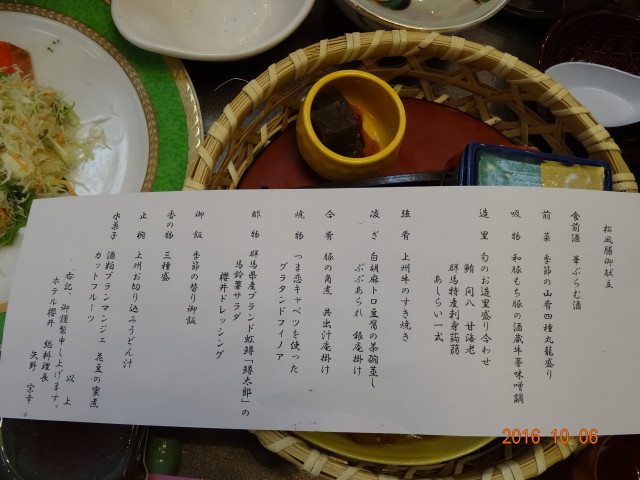 松風膳御献立
食前酒 華ぶらむ酒
前菜 季節の山肴四種九籠盛り
吸物 和豚もち豚の酒蔵牛蒡味噌鍋
造里 旬のお造里盛り合わせ
鮪 間八 甘海老
群馬特産刺身蒟蒻
あしらい一式
強肴 上州牛のすき焼き
凌ぎ 白胡麻トロ豆腐の茶碗蒸し
ぶぶあられ 銀庵掛け
合肴 豚の角煮 共出汁庵掛け
焼物 つま恋キャベツを使った
グラタンドフィノア
酢物 群馬県産ブランド虹鱒「鱒太郎」の
馬鈴薯サラダ
櫻井ドレッシング
御飯 季節の替り御飯
香の物 三種盛
止椀 上州お切り込みうどん汁
水菓子 酒粕ブランマンジェ 花豆の蜜煮
カットフルーツ
以上
右記、御謹製申し上げます。
ホテル櫻井 総料理長
矢野 宗幸
2016 10 06